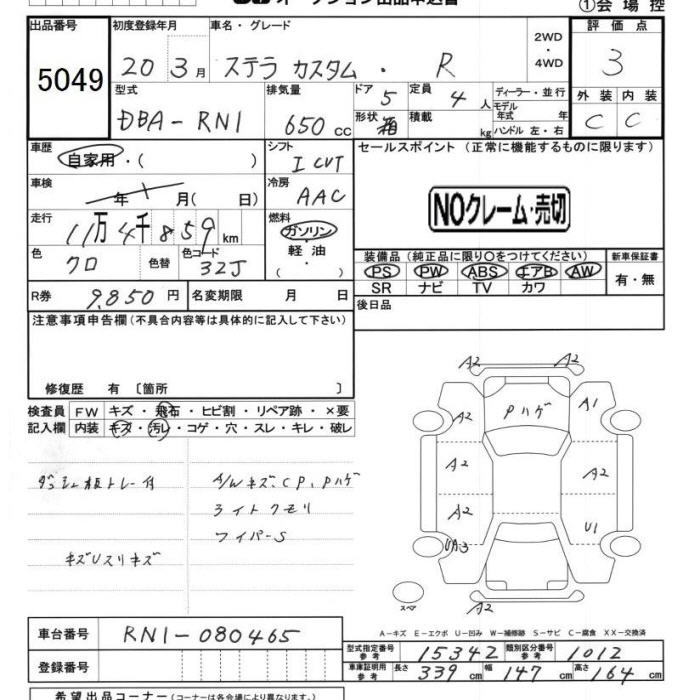 ①会場控
出品番号 初度登録年月 車名・グレード 2WD・4WD 評価点
5049 20 3月 ステラ カスタム・R 3
型式 排気量 ドア 5 定員 4人 ディーラー・並行 外装 内装
DBA-RN1 650cc 形状 箱 積載 kg モデル年式 年 ハンドル 左・右 C C
車歴 自家用・( ) シフト I CVT セールスポイント (正常に機能するものに限ります)
車検 年 月( 日) 冷房 AAC
NOクレーム・売切
走行 11万4千859km 燃料 ガソリン・軽油・( )
色 クロ 色替 色コード 32J
装備品 (純正品に限り○をつけてください) 新車保証書
PS PW ABS エアB AW 有・無
SR ナビ TV カワ
R券 9,850円 名変期限 月 日
後日品
注意事項申告欄(不具合内容等は具体的に記入して下さい)
修復歴 有 〔箇所 〕
検査員記入欄 FW キズ・飛石・ヒビ割・リペア跡・×要
内装 キズ・汚レ・コゲ・穴・スレ・キレ・破レ
A/Wキズ、CP、Pハゲ
ライトクモリ
ワイパーS
A2 A2
A2 Pハゲ A1
A2 A2
A2 U1
UA3
A2
スペア
A-キズ E-エクボ U-凹み W-補修跡 S-サビ C-腐食 XX-交換済
車台番号 RN1-080465
登録番号
型式指定番号参考 15342 類別区分番号参考 1012
車庫証明用参考 長さ 339cm 幅 147cm 高さ 164cm
希望出品コーナー(コーナーは各会場により異なります。)